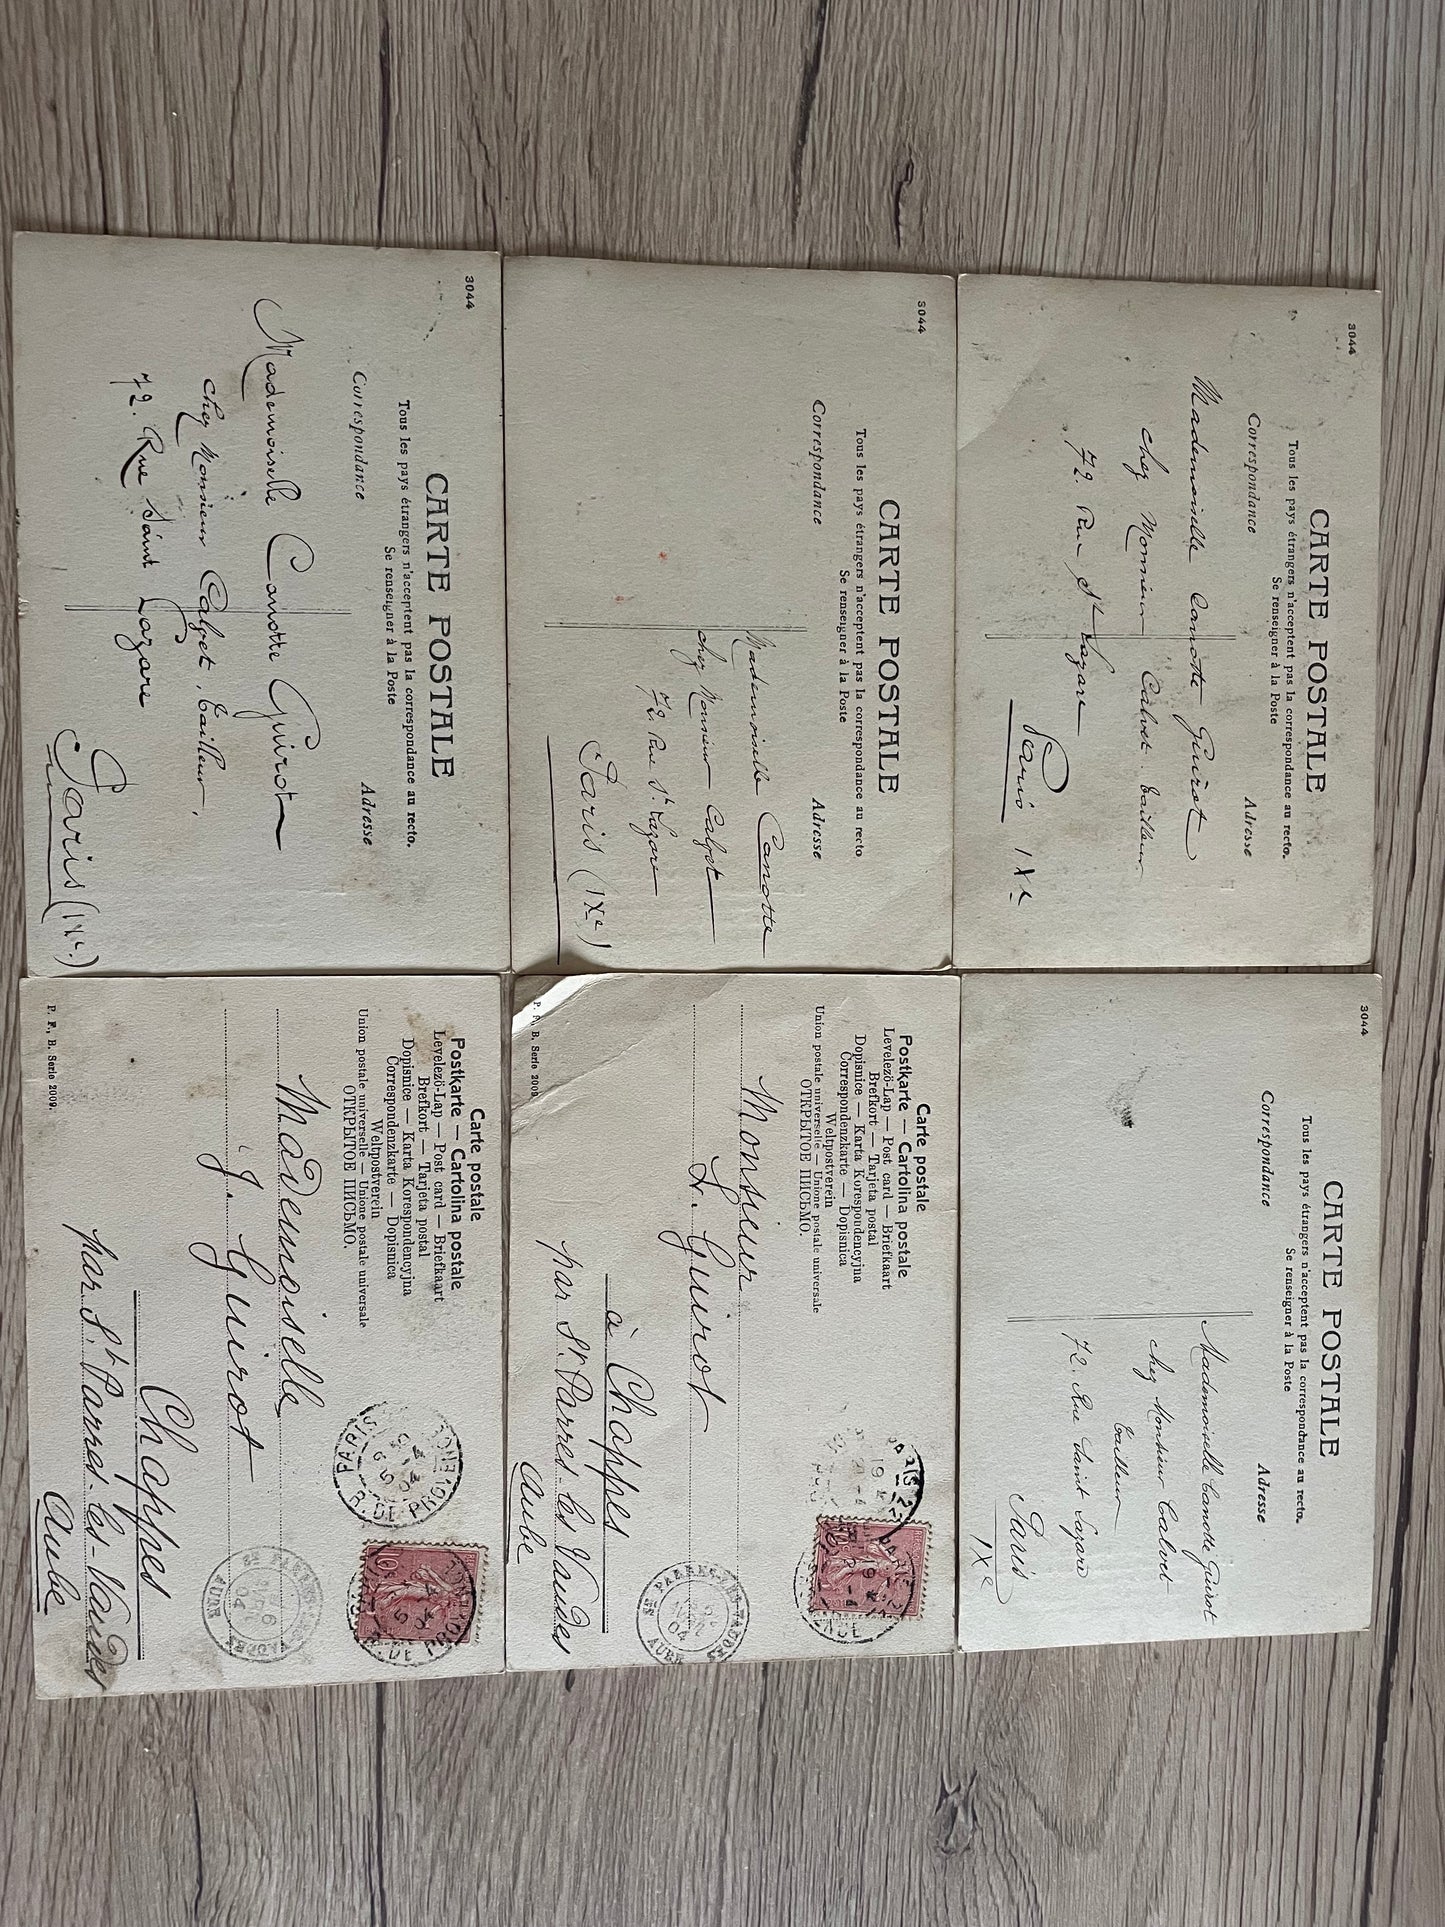 3044
CARTE POSTALE
Tous les pays étrangers n'acceptent pas la correspondance au recto.
Se renseigner à la Poste
Correspondance
Adresse
Mademoiselle Canotte Guirot
chez Monsieur Calvet. tailleur
72. Rue St Lazare
Paris IXe
3044
CARTE POSTALE
Tous les pays étrangers n'acceptent pas la correspondance au recto.
Se renseigner à la Poste
Correspondance
Adresse
Mademoiselle Canotte Guirot
chez Monsieur Calvet
tailleur
72. Rue Saint Lazare
Paris
IXe
3044
CARTE POSTALE
Tous les pays étrangers n'acceptent pas la correspondance au recto
Se renseigner à la Poste
Correspondance
Adresse
Mademoiselle Canotte
chez Monsieur Calvet
72. Rue St Lazare
Paris (IXe)
Carte postale
Postkarte — Cartolina postale
Levelezö-Lap — Post card — Briefkaart
Brefkort — Tarjeta postal
Dopisnice — Karta Korespondencyjna
Correspondenzkarte — Dopisnica
Weltpostverein
Union postale universelle — Unione postale universale
ОТКРЫТОЕ ПИСЬМО.
Monsieur
L. Guirot
à Chappes
par St Parres-les Vaudes
Aube
P. F., B. Serie 2009.
ST PARRES-LES-VAUDES
04
AUBE
3044
CARTE POSTALE
Tous les pays étrangers n'acceptent pas la correspondance au recto.
Se renseigner à la Poste
Correspondance
Adresse
Mademoiselle Canotte Guirot
chez Monsieur Calvet, tailleur,
72. Rue Saint Lazare
Paris (IXe.)
Carte postale
Postkarte — Cartolina postale
Levelezö-Lap — Post card — Briefkaart
Brefkort — Tarjeta postal
Dopisnice — Karta Korespondencyjna
Correspondenzkarte — Dopisnica
Weltpostverein
Union postale universelle — Unione postale universale
ОТКРЫТОЕ ПИСЬМО.
Mademoiselle
J. Guirot
Chappes
par St Parres-les-Vaudes
Aube
P. F., B. Serie 2009.
PARIS
R. DE PRO
10
AUBE
04